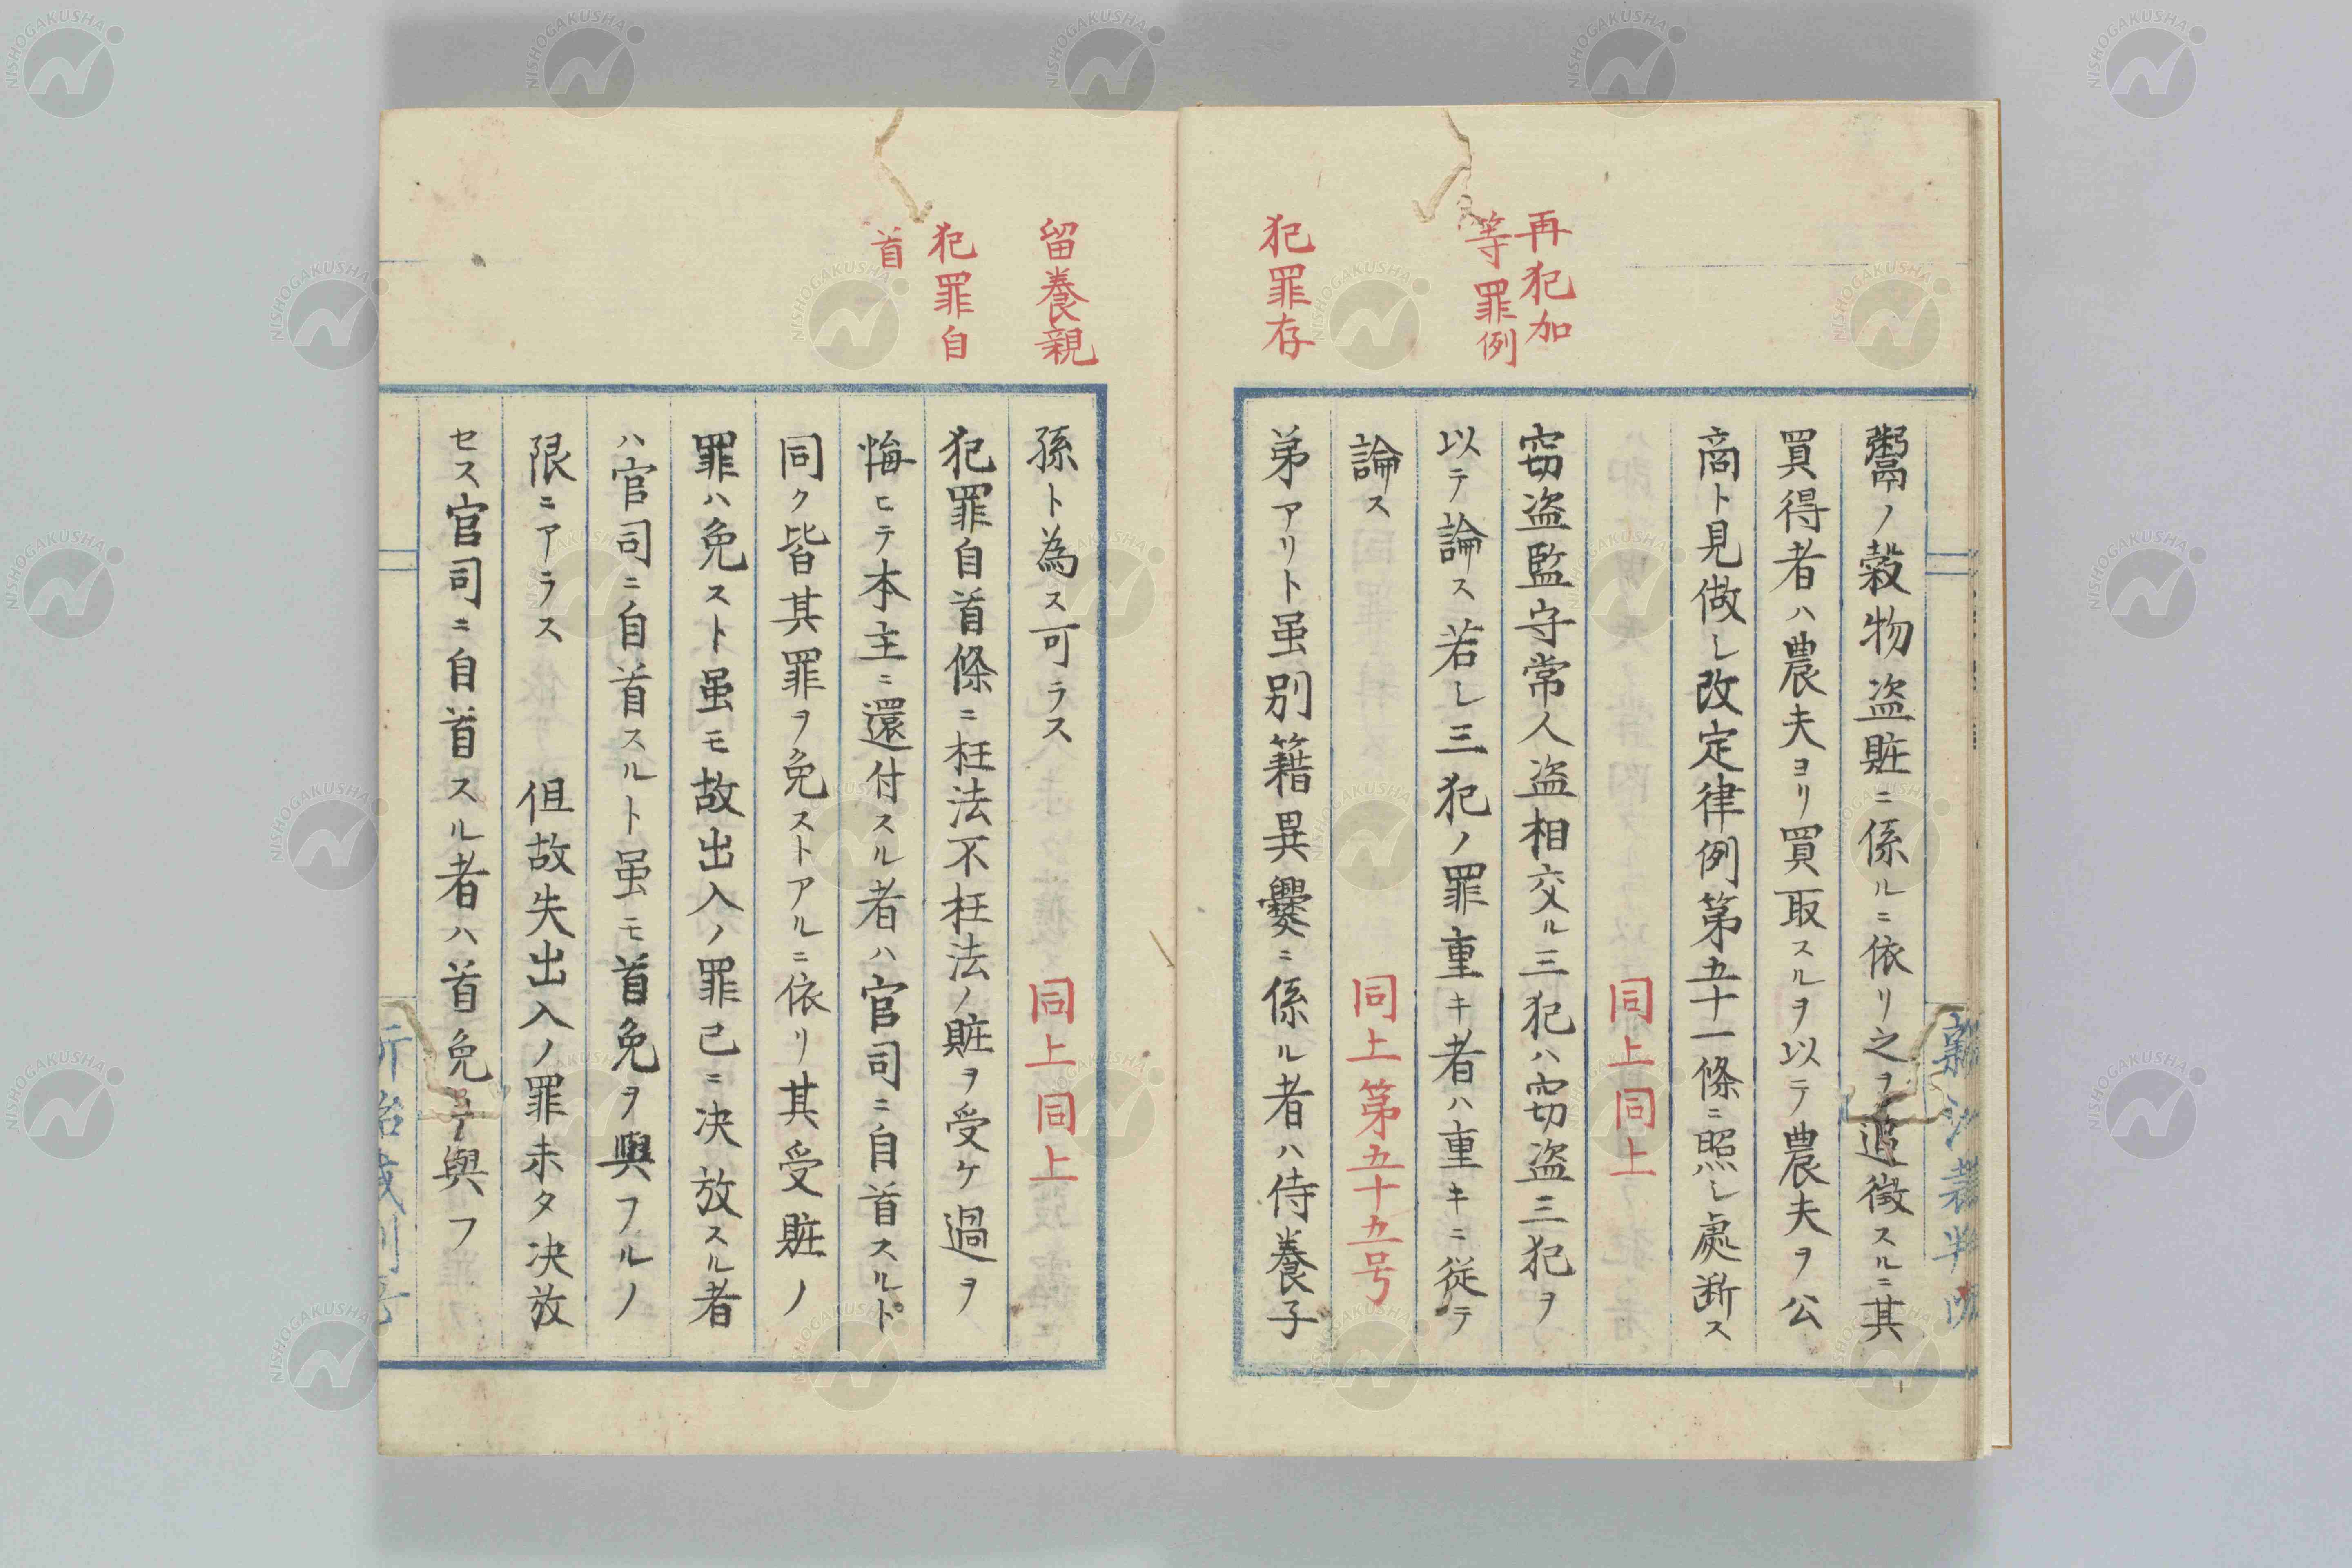 再犯加
等罪例
犯罪存
鬻ノ穀物盗賍ニ係ルニ依リ之ヲ追徴スルニ其
買得者ハ農夫ヨリ買取スルヲ以テ農夫ヲ公
商ト見做シ改定律例第五十一條ニ照シ處断ス
同上同上
窃盗監守常人盗相交ル三犯ハ窃盗三犯ヲ
以テ論ス若シ三犯ノ罪重キ者ハ重キニ従テ
論ス
同上第五十五号
弟アリト虽別籍異爨ニ係ル者ハ侍養子
留養親
犯罪自
首
孫ト為ス可ラス
同上同上
犯罪自首條ニ枉法不枉法ノ賍ヲ受ケ過ヲ
悔ヒテ本主ニ還付スル者ハ官司ニ自首スルト
同ク皆其罪ヲ免ストアルニ依リ其受賍ノ
罪ハ免スト虽モ故出入ノ罪已ニ决放スル者
ハ官司ニ自首スルト虽モ首免ヲ與フルノ
限ニアラス 但故失出入ノ罪未タ决放
セス官司ニ自首スル者ハ首免ヲ與フ
NISHOGAKUSHA